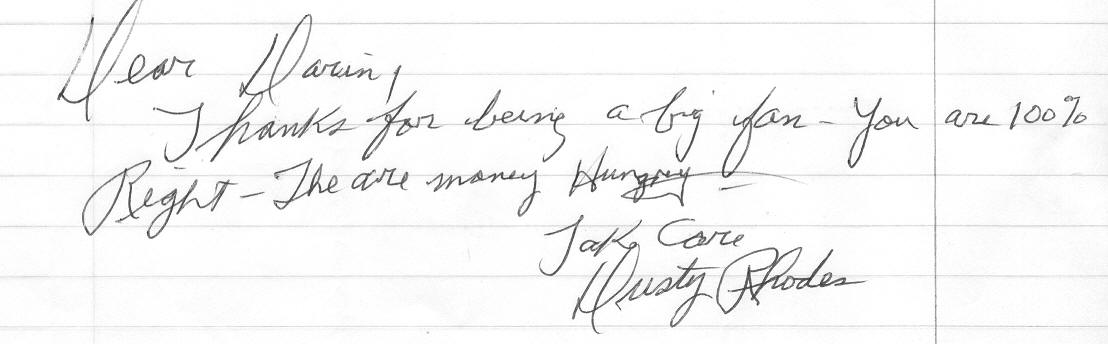 Dear Darin,
Thanks for being a big fan - You are 100%
Right - The are money Hungry -
Take Care
Dusty Rhodes